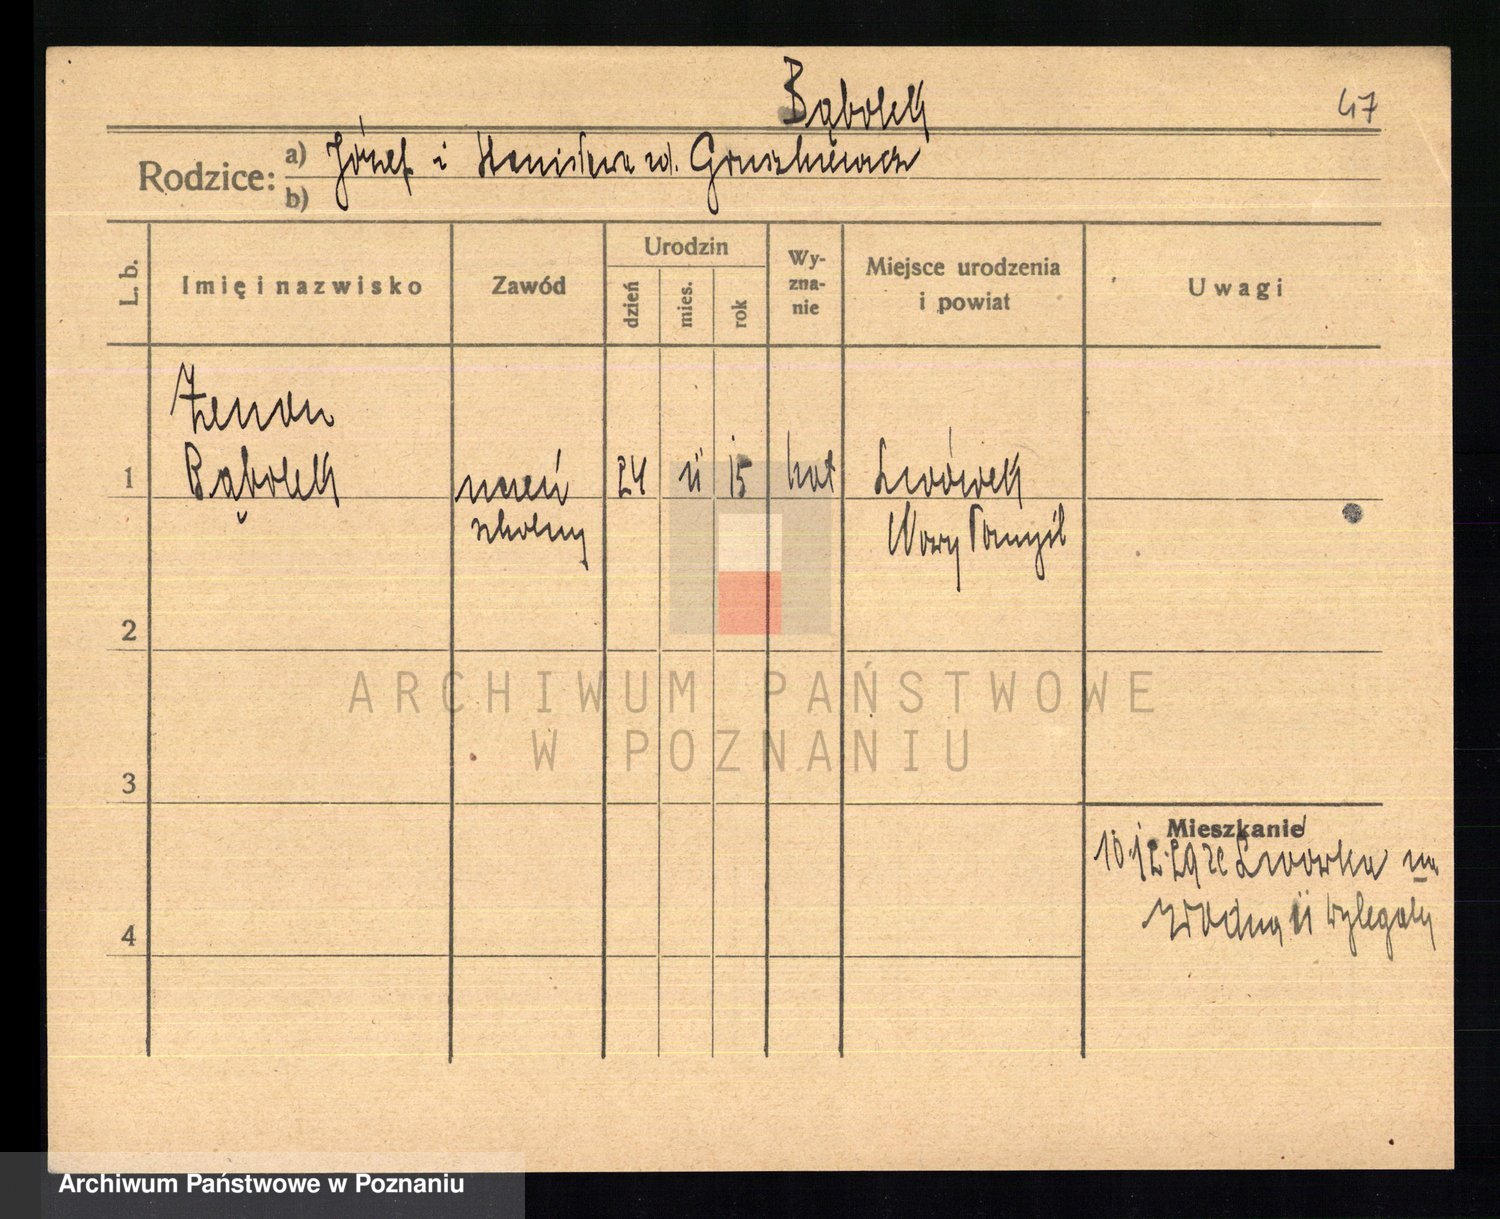 Bąbolek
47
Rodzice: a) Józef i Stanisława zd. Gruszkiewicz
b)
L. b.
Imię i nazwisko
Zawód
Urodzin
dzień
mies.
rok
Wy-
zna-
nie
Miejsce urodzenia
i powiat
Uwagi
Zenon
1 Bąbolek uczeń 24 11 15 kat Lwówek
szkolny Nowy Tomyśl
2
ARCHIWUM PAŃSTWOWE
W POZNANIU
3
Mieszkanie
10.12.29 ze Lwówka na
Wodną 11
4
Archiwum Państwowe w Poznaniu